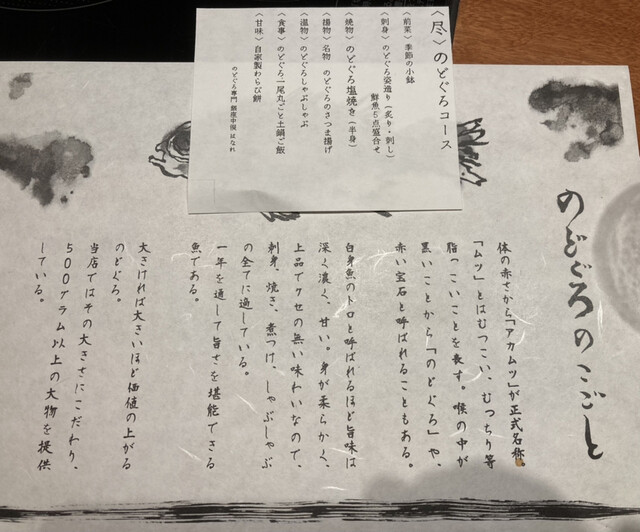 〈尽〉のどぐろコース
〈前菜〉季節の小鉢
〈刺身〉のどぐろ姿造り(炙り・刺し)
鮮魚5点盛合せ
〈焼物〉のどぐろ塩焼き(半身)
〈揚物〉名物 のどぐろのさつま揚げ
〈温物〉のどぐろしゃぶしゃぶ
〈食事〉のどぐろ一尾丸ごと土鍋ご飯
〈甘味〉自家製わらび餅
のどぐろ専門 銀座中俣 はなれ
のどぐろのこごと
体の赤さから「アカムツ」が正式名称。
「ムツ」とはむつこい、むっちり等
脂っこいことを表す。喉の中が
黒いことから「のどぐろ」や、
赤い宝石と呼ばれることもある。
白身魚のトロと呼ばれるほど旨味は
深く濃く、甘い。身が柔らかく、
上品でクセの無い味わいなので、
刺身、焼き、煮つけ、しゃぶしゃぶ
の全てに適している。
一年を通して旨さを堪能できる
魚である。
大きければ大きいほど価値の上がる
のどぐろ。
当店ではその大きさにこだわり、
500グラム以上の大物を提供
している。